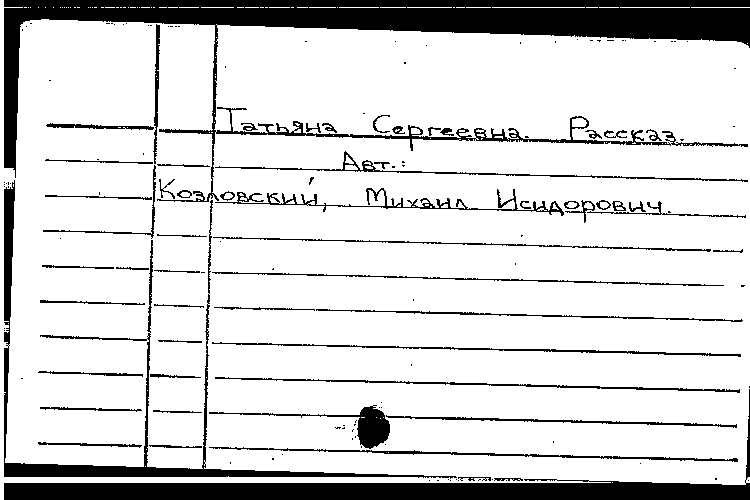 Татьяна Сергеевна. Рассказ.
Авт.:
Козловский, Михаил Исидорович.